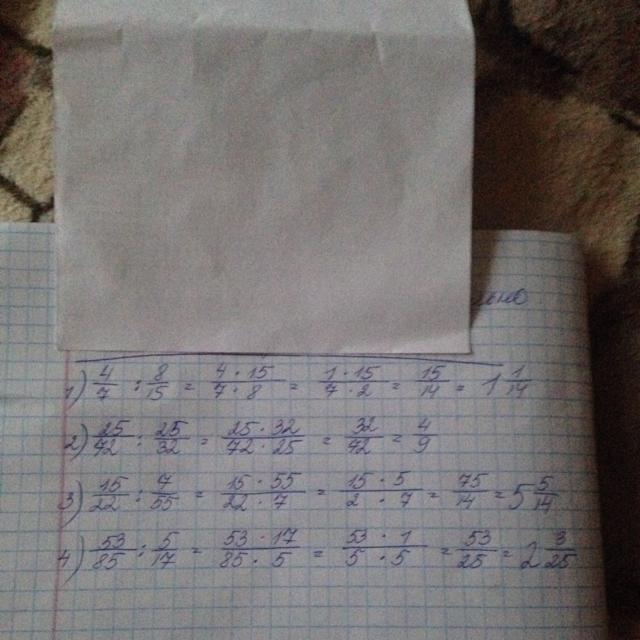 1) 4/7 : 8/15 = 4·15/7·8 = 1·15/7·2 = 15/14 = 1 1/14
2) 25/72 : 25/32 = 25·32/72·25 = 32/72 = 4/9
3) 15/22 : 7/55 = 15·55/22·7 = 15·5/2·7 = 75/14 = 5 5/14
4) 53/85 : 5/17 = 53·17/85·5 = 53·1/5·5 = 53/25 = 2 3/25